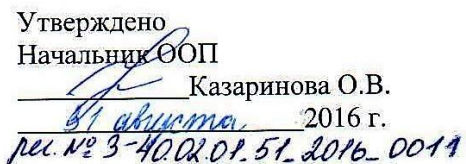 Утверждено
Начальник ООП
Казаринова О.В.
31 августа 2016 г.
рег. № 3-40.02.01.51-2016-0011